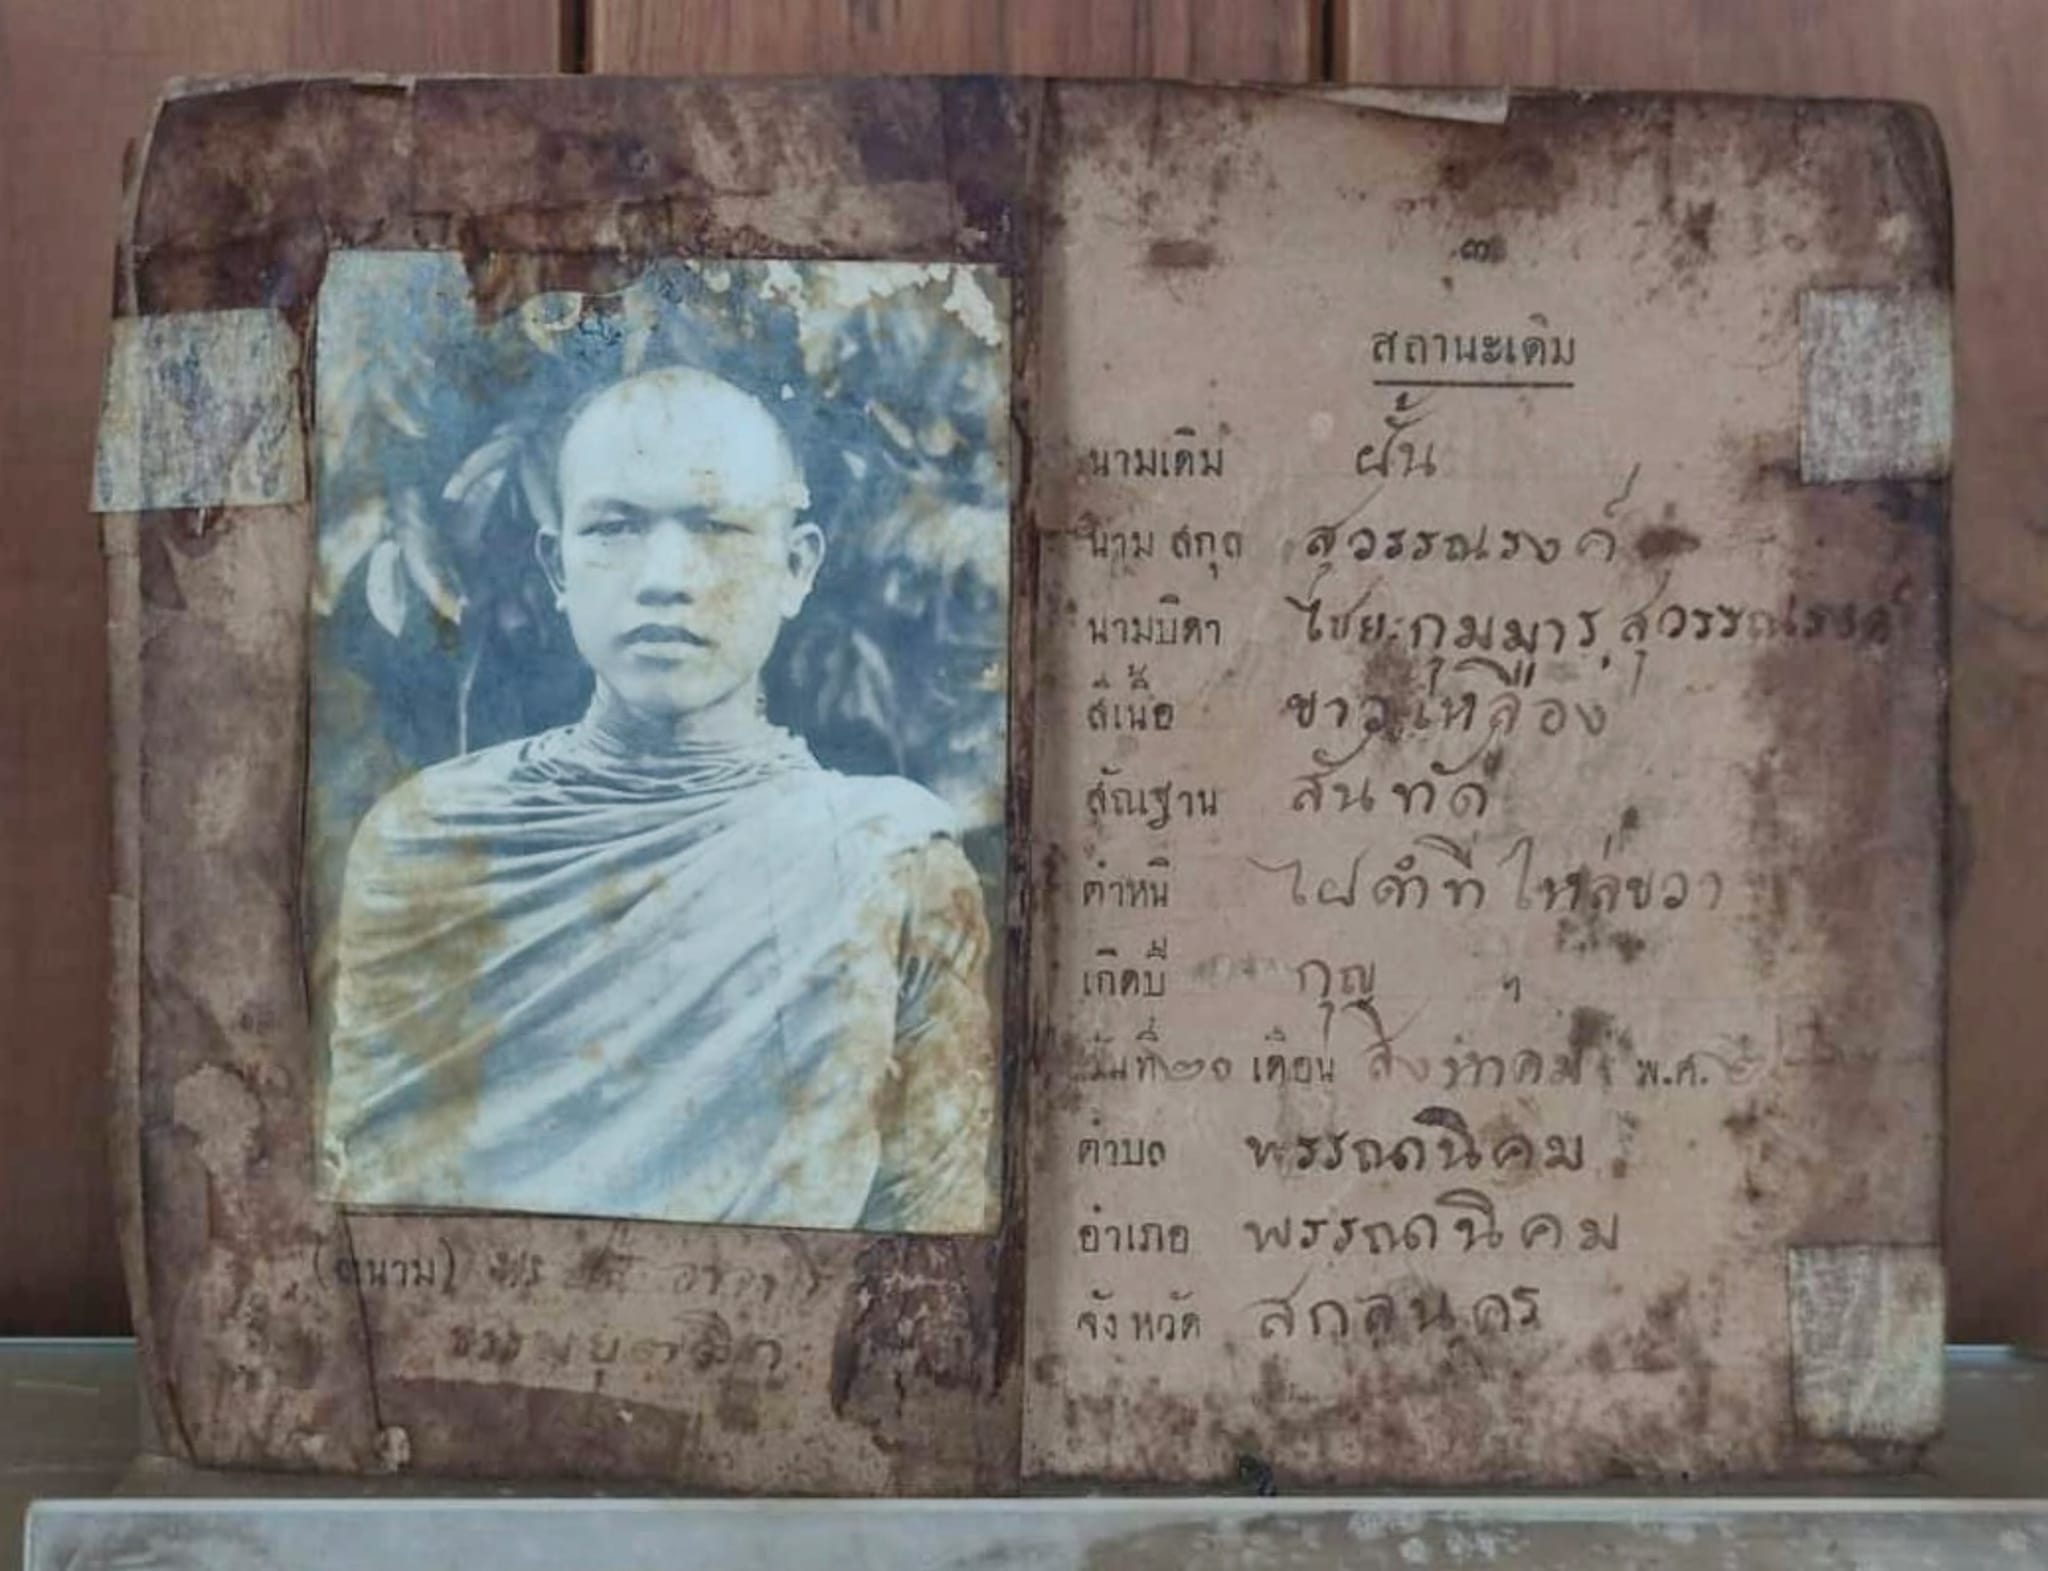 (ฉนาม) พระ
ธรรมยุตติก
๓
สถานะเดิม
นามเดิม ฝั้น
นาม สกุล สุวรรณรงค์
นามบิดา ไชยะกุมมาร สุวรรณรงค์
สีเนื้อ ขาวเหลือง
สัณฐาน สันทัด
ตำหนิ ไฝดำที่ไหล่ขวา
เกิดปี กุญ
วันที่ ๒๐ เดือน สิงหาคม พ.ศ.
ตำบล พรรณานิคม
อำเภอ พรรณานิคม
จังหวัด สกลนคร